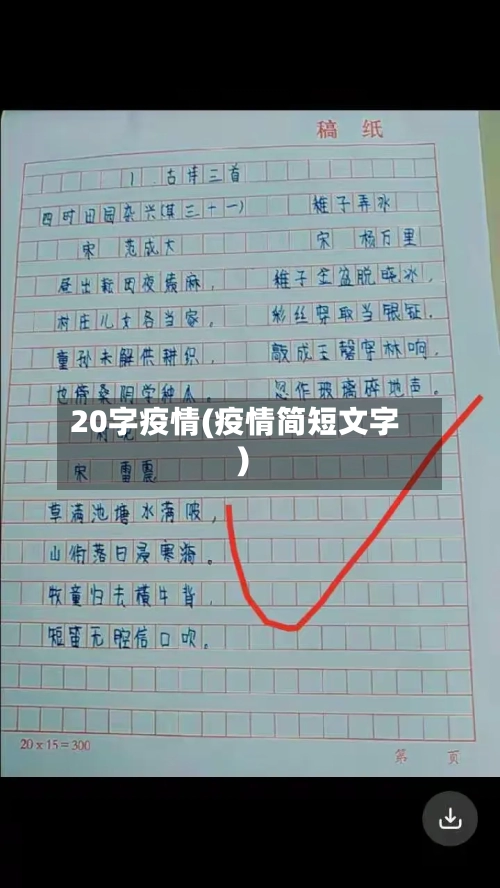 稿 纸
1 古诗三首
四时田园杂兴(其三十一)
宋 范成大
昼出耘田夜绩麻，
村庄儿女各当家。
童孙未解供耕织，
也傍桑阴学种瓜。
稚子弄冰
宋 杨万里
稚子金盆脱晓冰，
彩丝穿取当银钲。
敲成玉磬穿林响，
忽作玻璃碎地声。
20字疫情(疫情简短文字
)
宋 雷震
草满池塘水满陂，
山衔落日浸寒漪。
牧童归去横牛背，
短笛无腔信口吹。
20x15=300
第 页